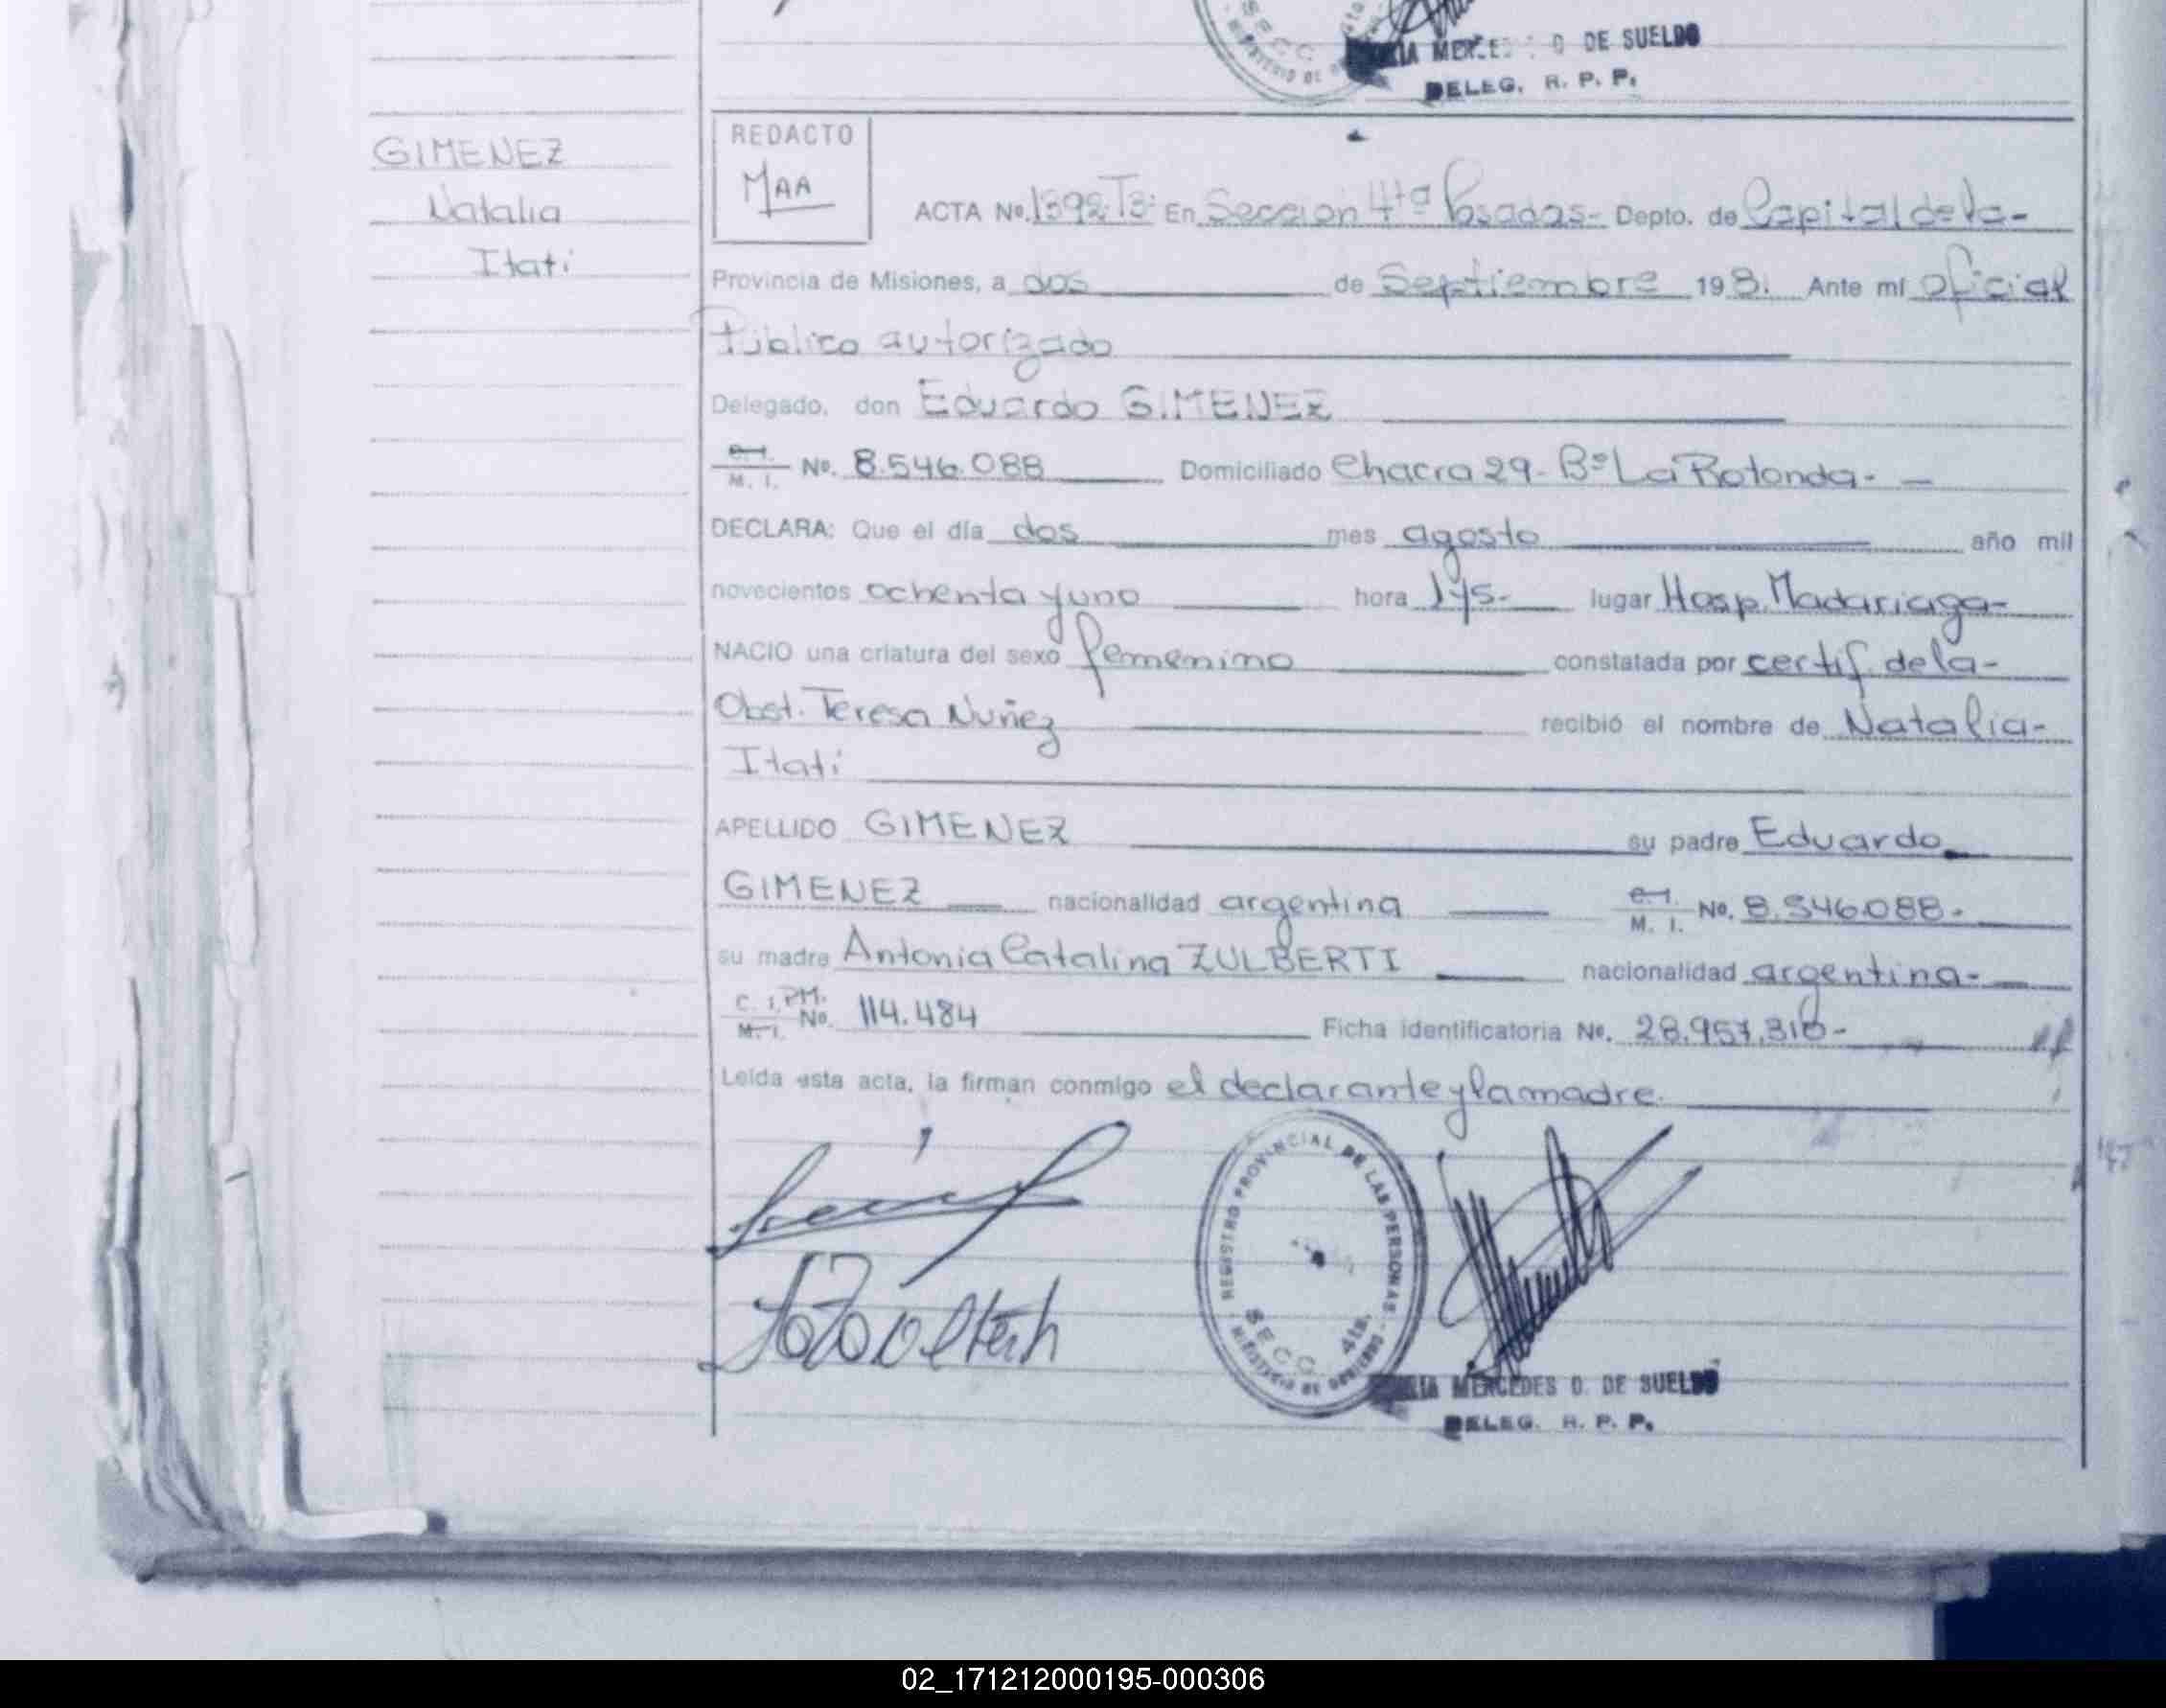 DE SUELDO
DELEG. R. P. P.
GIMENEZ
Natalia
Itatí
REDACTO
MAA
ACTA No. 1392 T3: En Seccion 4ta Posadas- Depto. de Capital de la-
Provincia de Misiones, a dos de Septiembre 1981. Ante mí oficial
Público autorizado
Delegado, don Eduardo GIMENEZ
M. I. No. 8.546.088 Domiciliado Chacra 29- Bº La Rotonda-
DECLARA: Que el día dos mes agosto año mil
novecientos ochenta y uno hora lugar Hosp. Madariaga-
NACIO una criatura del sexo femenino constatada por certif. de la-
Obst. Teresa Nuñez recibió el nombre de Natalia-
Itatí
APELLIDO GIMENEZ su padre Eduardo
GIMENEZ nacionalidad argentina M. I. No. 8.546.088-
su madre Antonia Catalina ZULBERTI nacionalidad argentina-
C. I. PM. M. I. No. 114.484 Ficha identificatoria No. 28.957.310-
Leída esta acta, la firman conmigo el declarante y la madre.
REGISTRO PROVINCIAL DE LAS PERSONAS
SECC. 4ta.
MINISTERIO DE GOBIERNO
MERCEDES O. DE SUELDO
DELEG. R. P. P.
02_171212000195-000306